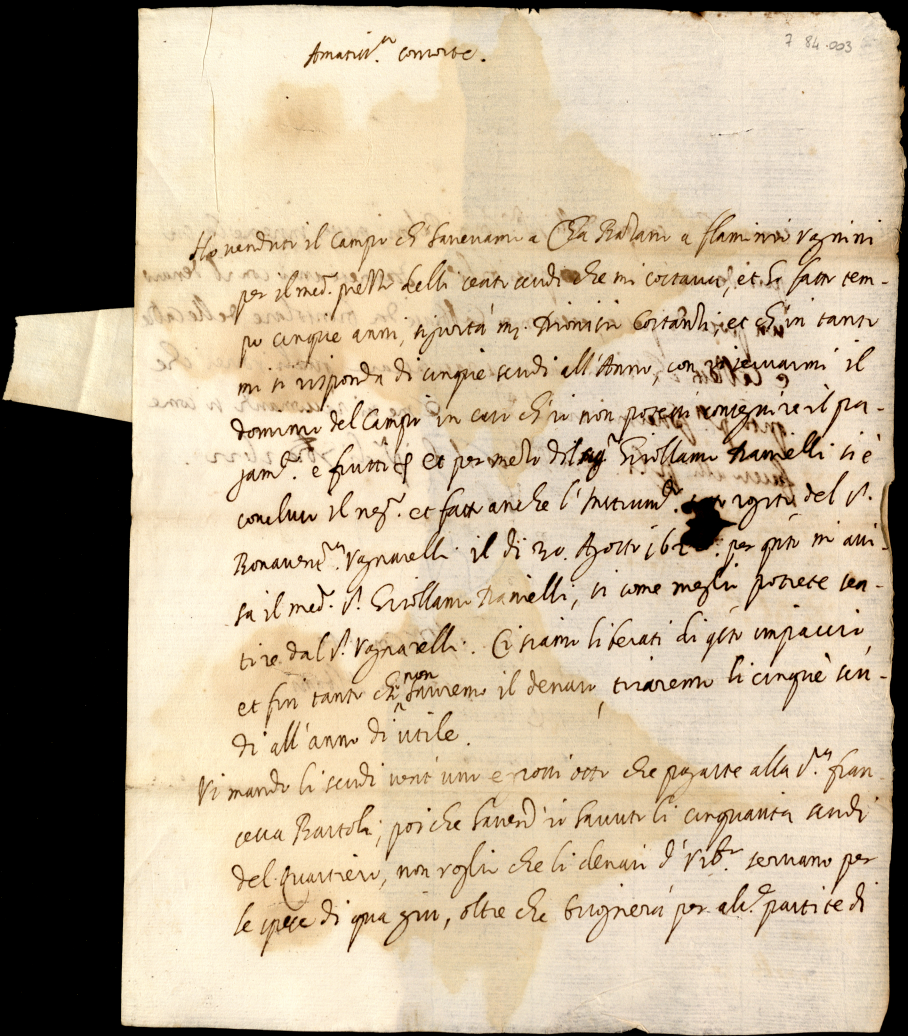 7 84.003
Amatiss.ma consorte.
Ho venduto il Campo ch havevamo a Cha a flaminio Vagnini
per il med.o prezzo delli cento scudi che mi costava, et ho fatto tem-
po cinque anni, m.r Dionisio et ch'in tanto
mi si risponda di cinque scudi all'Anno, con riservarmi il
dominio del Campo in caso ch'io non potessi conseguire il pa-
gam.to e frutti et per mezo del sig.r Girollamo Ramelli si è
concluso il neg.o et fatto anche l'Instrum.to rogito del S.r
Bonavent.ra Vagnarelli il di 30 Agosto per q̃sto m'avi-
sa il med.o S.r Girollamo Ramelli, si come meglio potrete sen-
tire dal S.r Vagnarelli. Ci siamo liberati di q̃sto impaccio
et fin tanto ch non havremo il denaro, tiraremo li cinque scu-
di all'anno di utile.
Vi mando li scudi vent'uno e otto che pagaste alla S.ra fran-
cesca Bartoli; poiche havend'io havuto li cinquanta scudi
del Quartiero, non voglio che li denari d'Urb.o servano per
le spese di qua giu, oltre che bisognerà per alc.e partite di